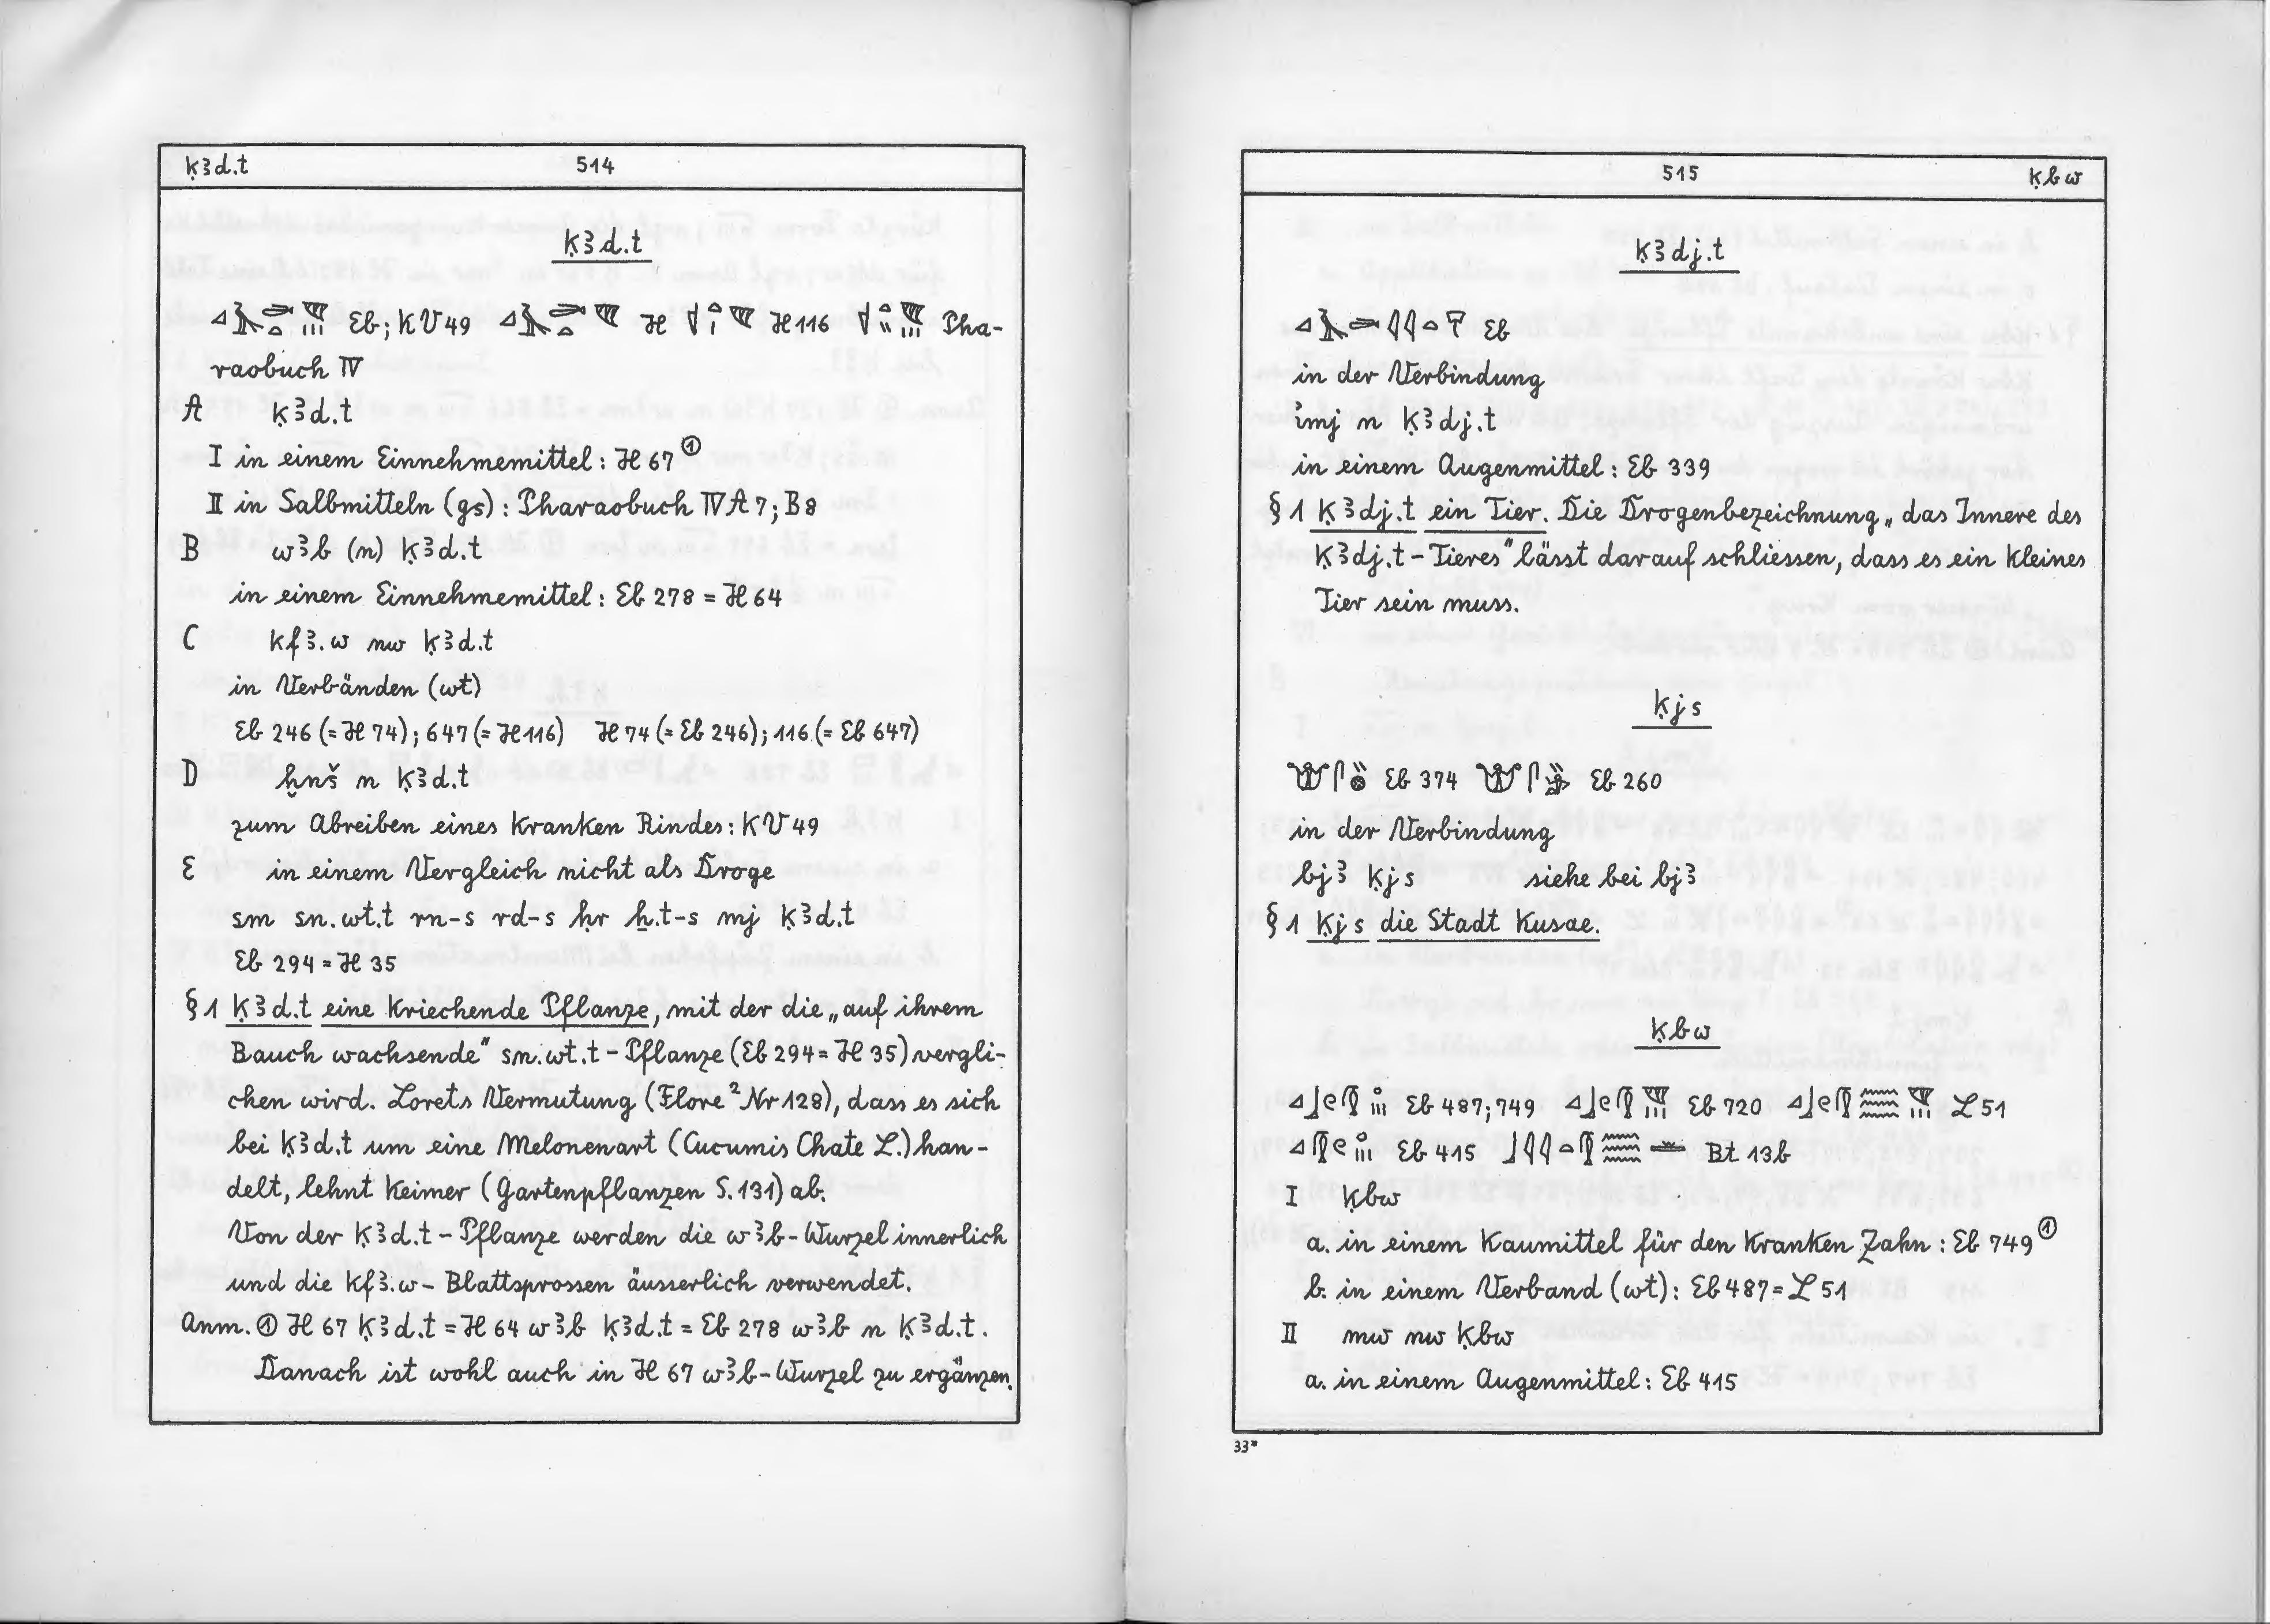 ḳꜣd.t 514
ḳꜣd.t
Eb; KV 49 H H 116 Pha-
raobuch IV
A ḳꜣd.t
I in einem Einnehmemittel: H 67 ①
II in Salbmitteln (gs): Pharaobuch IV A 7; B 8
B wꜣb (n) ḳꜣd.t
in einem Einnehmemittel: Eb 278 = H 64
C kfꜣ.w nw ḳꜣd.t
in Verbänden (wt)
Eb 246 (= H 74); 647 (= H 116) H 74 (= Eb 246); 116 (= Eb 647)
D ḫnš n ḳꜣd.t
zum Abreiben eines kranken Rindes: KV 49
E in einem Vergleich nicht als Droge
sm sn.wt.t rn-s rd-s ḥr ẖ.t-s mj ḳꜣd.t
Eb 294 = H 35
§ 1 ḳꜣd.t eine kriechende Pflanze, mit der die „auf ihrem
Bauch wachsende" sn.wt.t-Pflanze (Eb 294 = H 35) vergli-
chen wird. Lorets Vermutung (Flore² Nr 128), dass es sich
bei ḳꜣd.t um eine Melonenart (Cucumis Chate L.) han-
delt, lehnt Keimer (Gartenpflanzen S. 131) ab.
Von der ḳꜣd.t-Pflanze werden die wꜣb-Wurzel innerlich
und die kfꜣ.w-Blattsprossen äusserlich verwendet.
Anm. ① H 67 ḳꜣd.t = H 64 wꜣb ḳꜣd.t = Eb 278 wꜣb n ḳꜣd.t.
Danach ist wohl auch in H 67 wꜣb-Wurzel zu ergänzen.
515 ḳbw
ḳꜣdj.t
Eb
in der Verbindung
imj n ḳꜣdj.t
in einem Augenmittel: Eb 339
§ 1 ḳꜣdj.t ein Tier. Die Drogenbezeichnung „das Innere des
ḳꜣdj.t-Tieres" lässt darauf schliessen, dass es ein kleines
Tier sein muss.
ḳjs
Eb 374 Eb 260
in der Verbindung
bjꜣ ḳjs siehe bei bjꜣ
§ 1 ḳjs die Stadt Kusae.
ḳbw
Eb 487; 749 Eb 720 L 51
Eb 415 Bt 13b
I ḳbw
a. in einem Kaumittel für den kranken Zahn: Eb 749 ①
b. in einem Verband (wt): Eb 487 = L 51
II mw nw ḳbw
a. in einem Augenmittel: Eb 415
33*